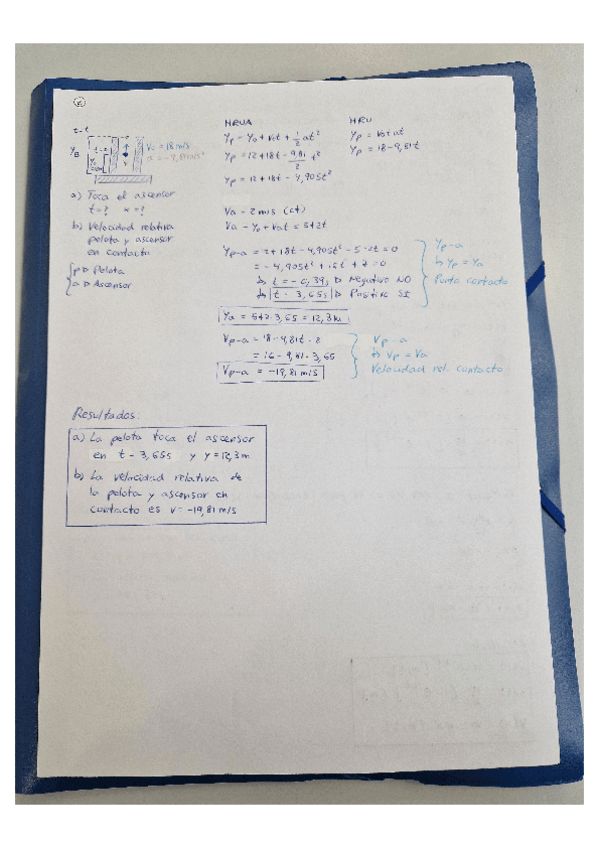 t = t
Y_B
V₀ = 18 m/s
a = -9,81 m/s²
a) Toca el ascensor
t = ? y = ?
b) Velocidad relativa
pelota y ascensor
en contacto
p ▷ Pelota
a ▷ Ascensor
MRUA
Yp = Y₀ + V₀t + 1/2 at²
Yp = 12 + 18t - 9,81/2 t²
Yp = 12 + 18t - 4,905t²
MRU
Vp = V₀ + at
Vp = 18 - 9,81t
Va = 2 m/s (ct)
Ya = Y₀ + Vat = 5 + 2t
Yp-a = 12 + 18t - 4,905t² - 5 - 2t = 0
= -4,905t² + 16t + 7 = 0
↳ t = -0,39s ▷ Negativo NO
↳ t = 3,65s ▷ Positivo SI
Yp-a
↳ Yp = Ya
Punto contacto
Ya = 5 + 2 · 3,65 = 12,3 m
Vp-a = 18 - 9,81t - 2
= 16 - 9,81 · 3,65
Vp-a = -19,81 m/s
Vp-a
↳ Vp = Va
Velocidad rel. contacto
Resultados:
a) La pelota toca el ascensor
en t = 3,65s y y = 12,3m
b) La velocidad relativa de
la pelota y ascensor en
contacto es v = -19,81 m/s